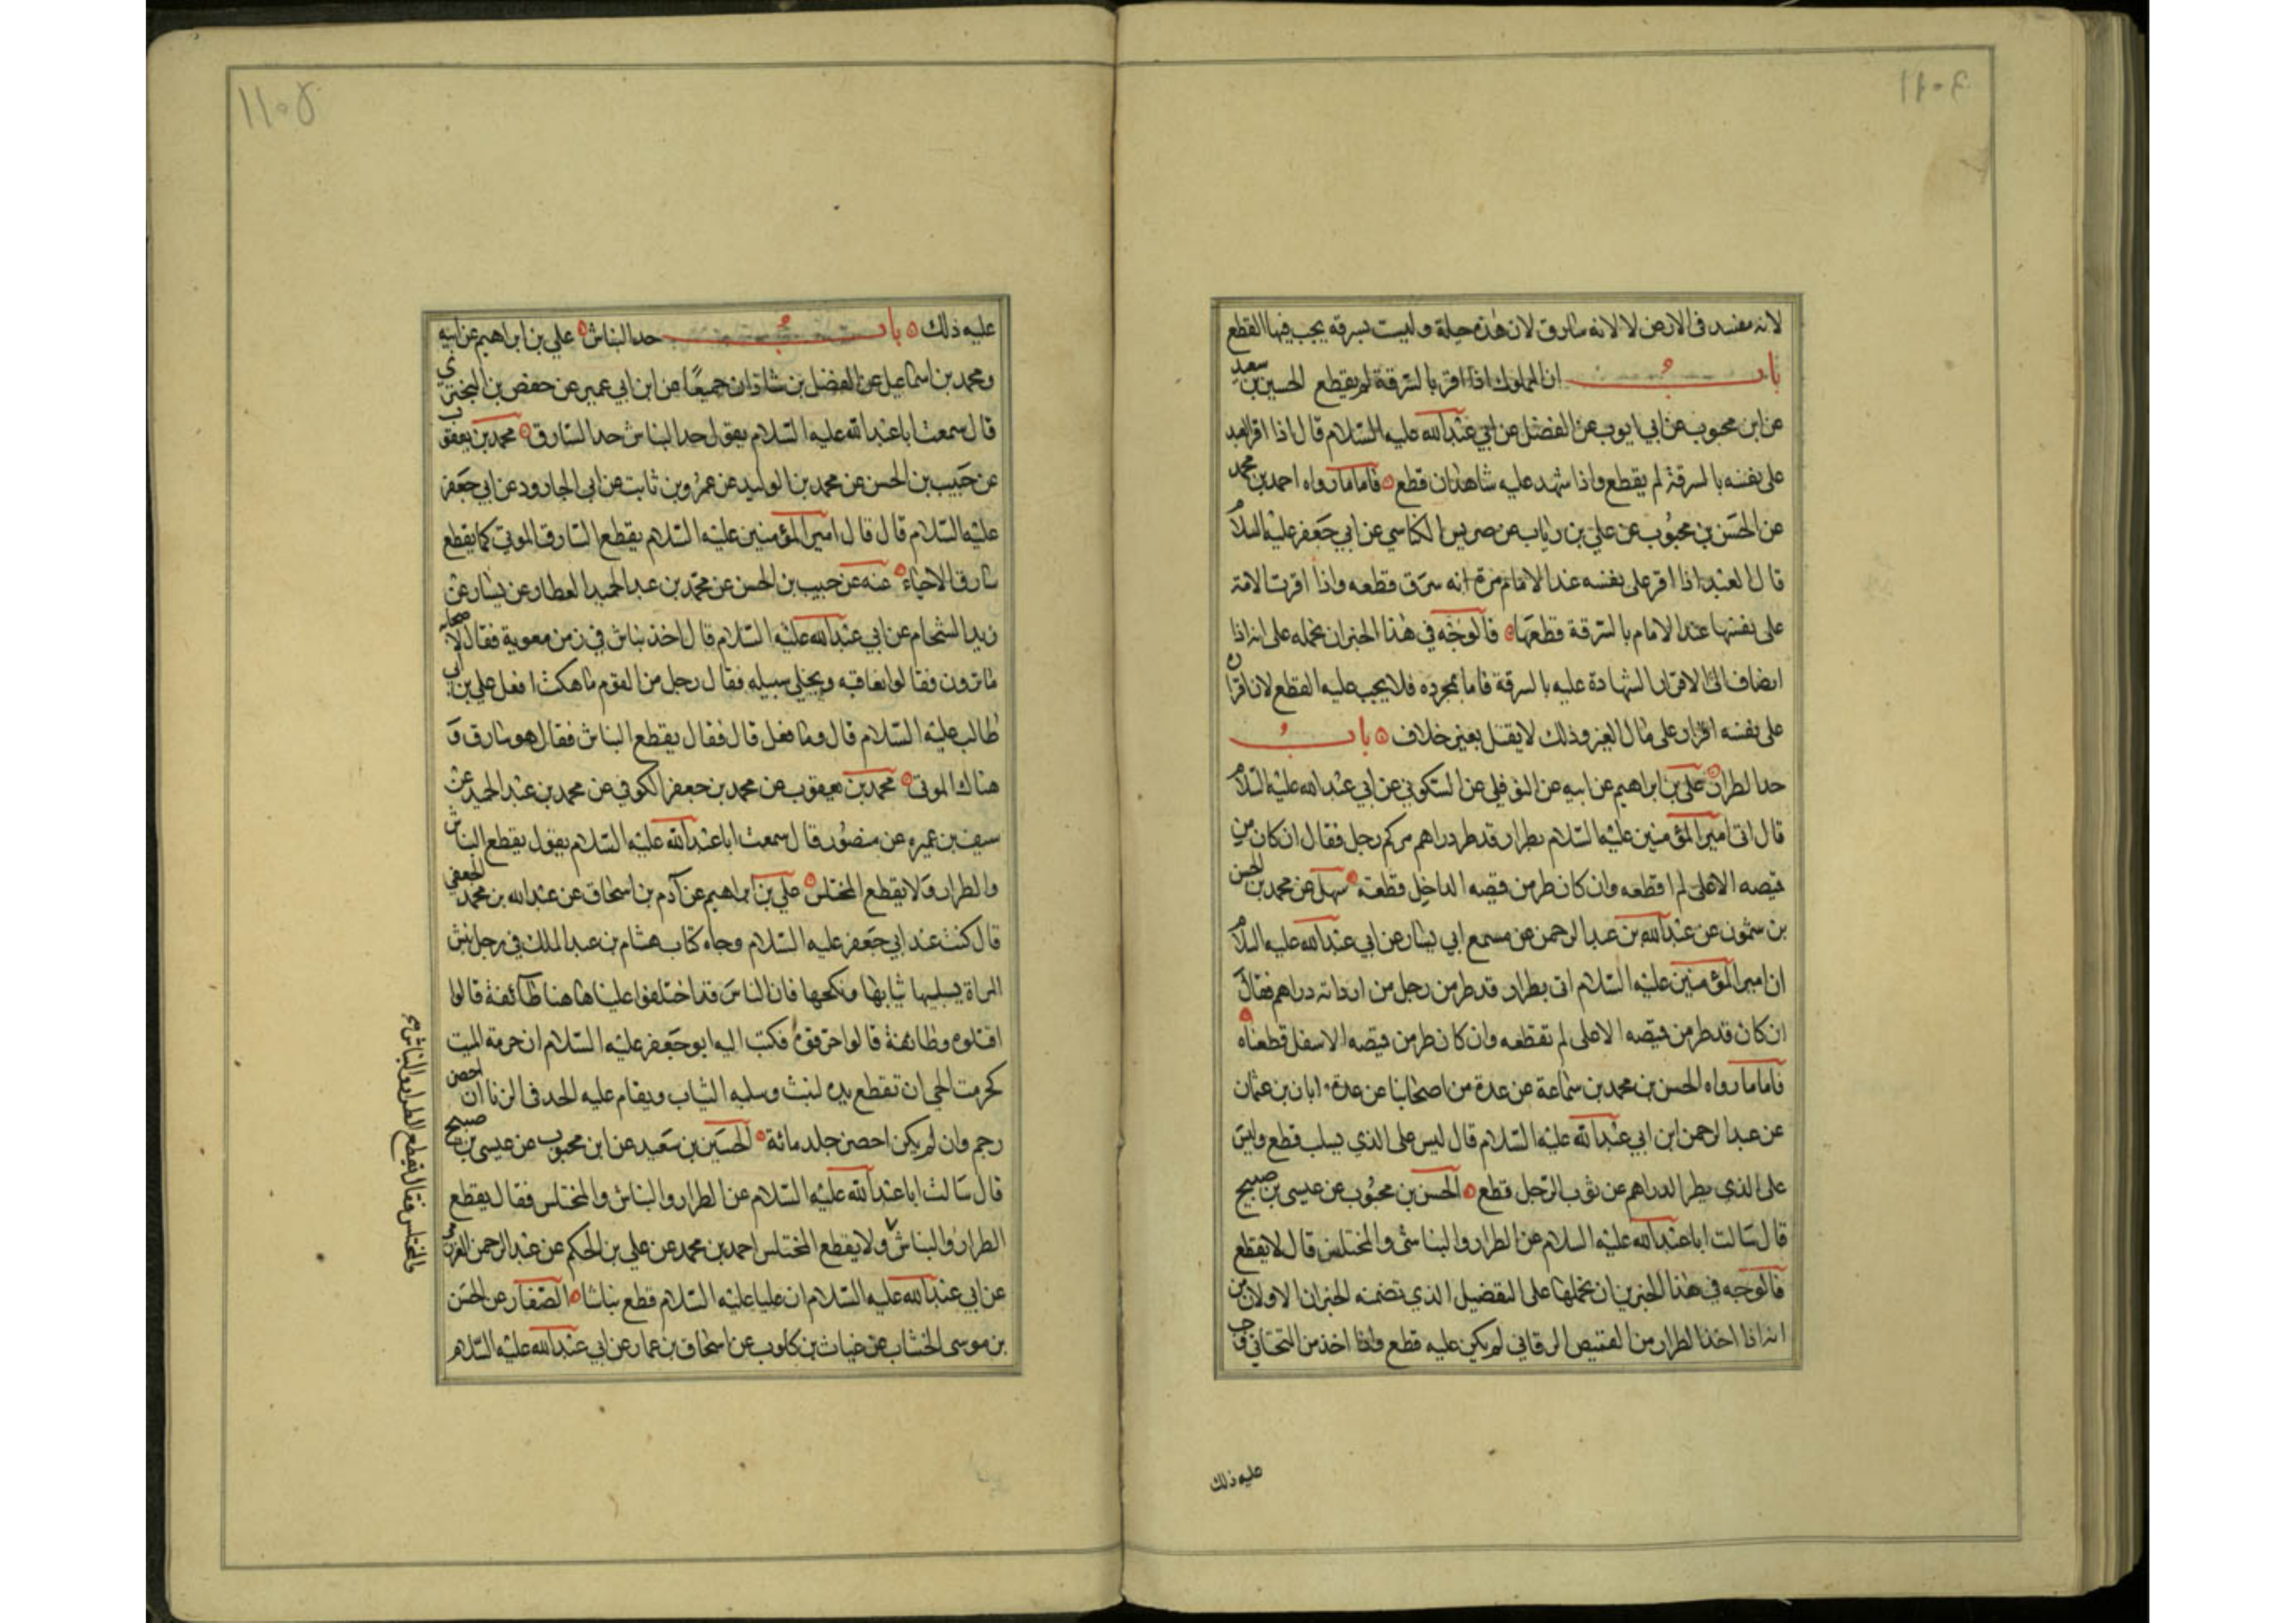 لانه مفسد فى الارض لا لانه سارق لان هذه حيلة وليست بسرقة يجب فيها القطع
باب ان المملوك اذا اقر بالسرقة لم يقطع الحسين بن سعيد
عن ابن محبوب عن ابي ايوب عن الفضل عن ابي عبدالله عليه السلام قال اذا اقر العبد
على نفسه بالسرقة لم يقطع واذا شهد عليه شاهدان قطع فاما ما رواه احمد بن محمد
عن الحسن بن محبوب عن علي بن رياب عن ضريس الكناسي عن ابي جعفر عليه السلام
قال العبد اذا اقر على نفسه عند الامام مرة انه سرق قطعه واذا اقرت الامة
على نفسها عند الامام بالسرقة قطعها فالوجه في هذا الخبر ان نحمله على انه اذا
انضاف الى الاقرار الشهادة عليه بالسرقة فاما بمجرده فلا يجب عليه القطع لان اقراره
على نفسه اقرار على مال الغير وذلك لا يقبل بغير خلاف باب
حد الطرار علي بن ابراهيم عن ابيه عن النوفلي عن السكوني عن ابي عبدالله عليه السلام
قال اتى امير المؤمنين عليه السلام بطرار قد طر دراهم من كم رجل فقال ان كان من
قيصه الاعلى لم اقطعه وان كان طر من قيصه الداخل قطعته سهل عن محمد بن الحسن
بن شمون عن عبدالله بن عبد الرحمن عن مسمع ابي يسار عن ابي عبدالله عليه السلام
ان امير المؤمنين عليه السلام اتى بطرار قد طر من رجل من اردانه دراهم فقال
ان كان قد طر من قيصه الاعلى لم نقطعه وان كان طر من قيصه الاسفل قطعناه
فاما ما رواه الحسن بن محمد بن سماعة عن عدة من اصحابنا عن عدة ابان بن عثمان
عن عبد الرحمن ابن ابي عبدالله عليه السلام قال ليس على الذي يسلب قطع وليس
على الذي يطر الدراهم عن ثوب الرجل قطع الحسن بن محبوب عن عيسى بن صبيح
قال سالت ابا عبدالله عليه السلام عن الطرار والنباش والمختلس قال لا يقطع
فالوجه في هذا الخبرين ان نحملها على التفصيل الذي تضمنه الخبران الاولان من
انه اذا اخذ الطرار من القميص الرقاني لم يكن عليه قطع واذا اخذ من التحتاني وجب
عليه ذلك
عليه ذلك باب حد النباش علي بن ابراهيم عن ابيه
ومحمد بن اسماعيل عن الفضل بن شاذان جميعا عن ابن ابي عمير عن حفص بن البختري
قال سمعت ابا عبد الله عليه السلام يقول حد النباش حد السارق محمد بن يعقوب
عن حبيب بن الحسن عن محمد بن الوليد عن عمرو بن ثابت عن ابي الجارود عن ابي جعفر
عليه السلام قال قال امير المؤمنين عليه السلام يقطع السارق الموتى كما يقطع
سارق الاحياء عنه عن حبيب بن الحسن عن محمد بن عبد الحميد العطار عن يسار عن
زيد الشحام عن ابي عبدالله عليه السلام قال اخذ نباش في زمن معوية فقال لاصحابه
ما ترون فقالوا نعاقبه ويخلي سبيله فقال رجل من القوم ما هكذا فعل علي بن ابي
طالب عليه السلام قال وما فعل قال فقال يقطع النباش فقال هو سارق و
هتاك الموتى محمد بن يعقوب عن محمد بن جعفر الكوفي عن محمد بن عبد الحميد عن
سيف بن عميره عن منصور قال سمعت ابا عبدالله عليه السلام يقول يقطع النباش
والطرار ولا يقطع المختلس علي بن ابراهيم عن آدم بن اسحاق عن عبد الله بن محمد الجعفي
قال كنت عند ابي جعفر عليه السلام وجاه كتاب هشام بن عبد الملك في رجل نبش
المراة يسلبها ثيابها ونكحها فان الناس قد اختلفوا علينا هاهنا طائفة قالوا
اقتلوه وطائفة قالوا احرقوه فكتب اليه ابو جعفر عليه السلام ان حرمة الميت
كحرمت الحي ان تقطع يده لنبث وسلبه الثياب ويقام عليه الحد في الزنا ان احصن
رجم وان لم يكن احصن جلد مائة الحسين بن سعيد عن ابن محبوب عن عيسى بن صبيح
قال سالت ابا عبدالله عليه السلام عن الطرار والنباش والمختلس فقال يقطع
الطرار والنباش ولا يقطع المختلس احمد بن محمد عن علي بن الحكم عن عبد الرحمن العزرمي
عن ابي عبدالله عليه السلام ان عليا عليه السلام قطع نباشا الصفار عن الحسن
بن موسى الخشاب عن غياث بن كلوب عن اسحاق بن عمار عن ابي عبدالله عليه السلام